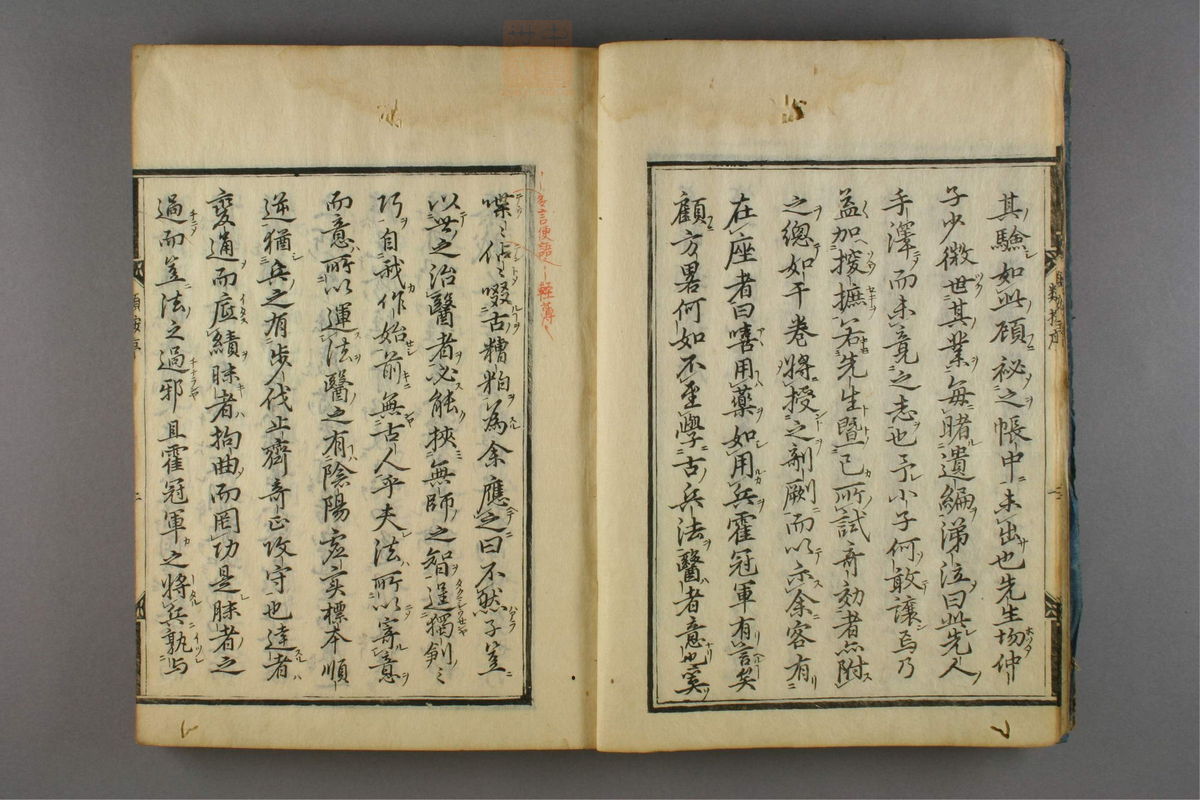 其驗如此顧祕之帳中未出也先生場仲
子少微世其業每睹遺編涕泣曰此先人
手澤而未竟之志也予小子何敢讓焉乃
益加搜摭若先生曁己所試奇効者点附
之總如干卷將授之剞劂而以示余客有
在座者曰嘻用藥如用兵霍冠軍有言矣
顧方畧何如不至學古兵法醫者意也奚
喋〻佔〻啜古糟粕為余應之曰不然子豈
以世之治醫者必能挾無師之智逞獨創〻
巧自我作始前無古人乎夫法所以寄意
而意所以運法醫之有陰陽虛实標本順
逆猶兵之有步伐止齊奇正攻守也達者
變通而底績昧者拘曲而罔功是昧者之
過而豈法之過邪且霍冠軍之將兵孰与
多言便語
輕薄